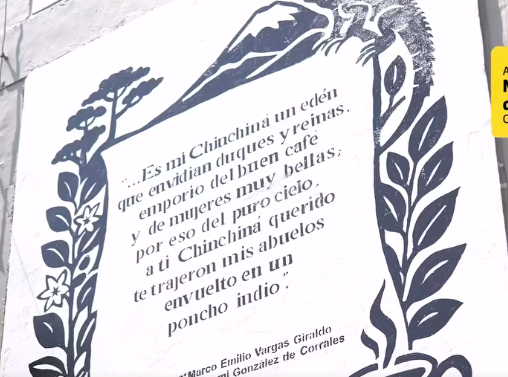 "...Es mi Chinchiná un edén
que envidian duques y reinas,
emporio del buen café
y de mujeres muy bellas;
por eso del puro cielo,
a ti Chinchiná querido
te trajeron mis abuelos
envuelto en un
poncho indio".
Marco Emilio Vargas Giraldo
González de Corrales